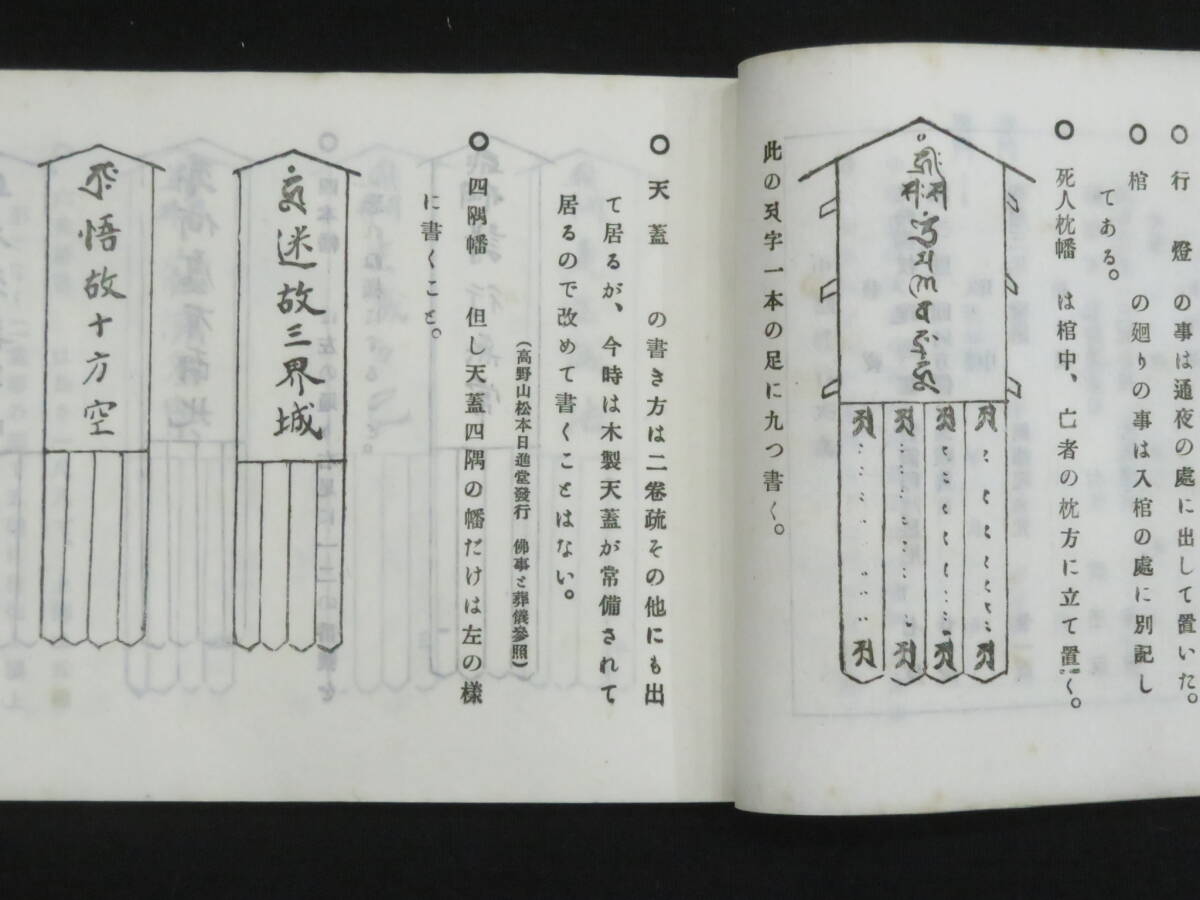 ○行燈の事は通夜の處に出して置いた。
○棺の廻りの事は入棺の處に別記し
てある。
○死人枕幡は棺中、亡者の枕方に立て置く。
此の字一本の足に九つ書く。
○天蓋の書き方は二卷疏その他にも出
て居るが、今時は木製天蓋が常備されて
居るので改めて書くことはない。
(高野山松本日進堂發行 佛事と葬儀參照)
○四隅幡 但し天蓋四隅の幡だけは左の樣
に書くこと。
迷故三界城
悟故十方空